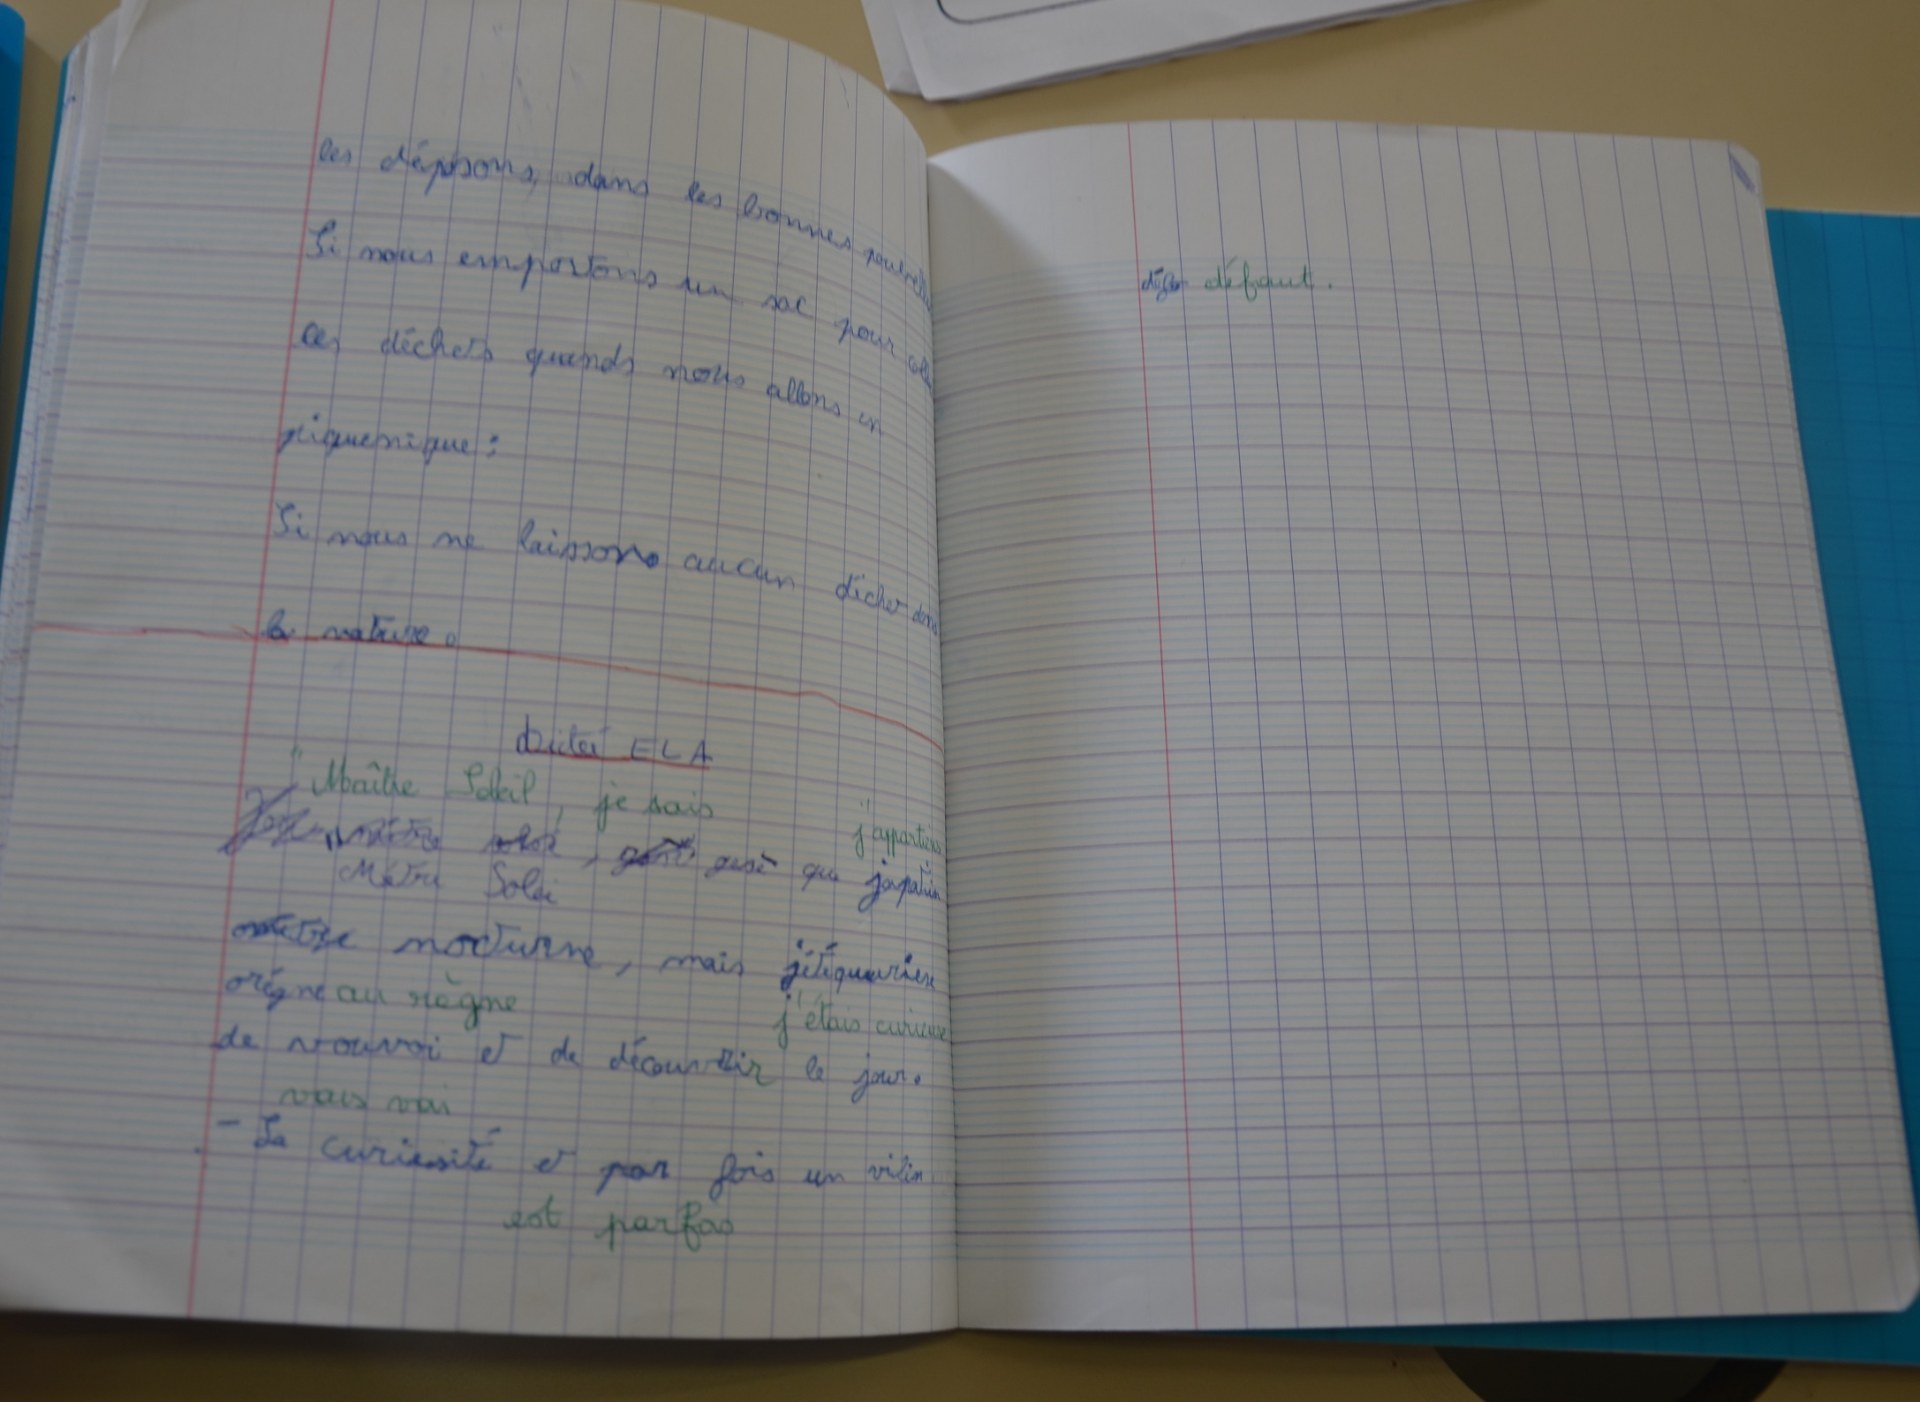 les déposons, dans les bonnes
Si nous emportons un sac pour
les déchets quands nous allons en
piquenique :
Si nous ne laissons aucun déchet dans
la nature.
Dictée ELA
" Maître Soleil, je sais
j'appartiens
maitre , gesé que japatin
Métre Solei
nocturne, mais jétéqueurieu
orégne au règne
j'étais curieuse
de vouvoi et de découvrir le jour.
vous voi
- La curiosité et par fois un vilin
est parfos
défaut.